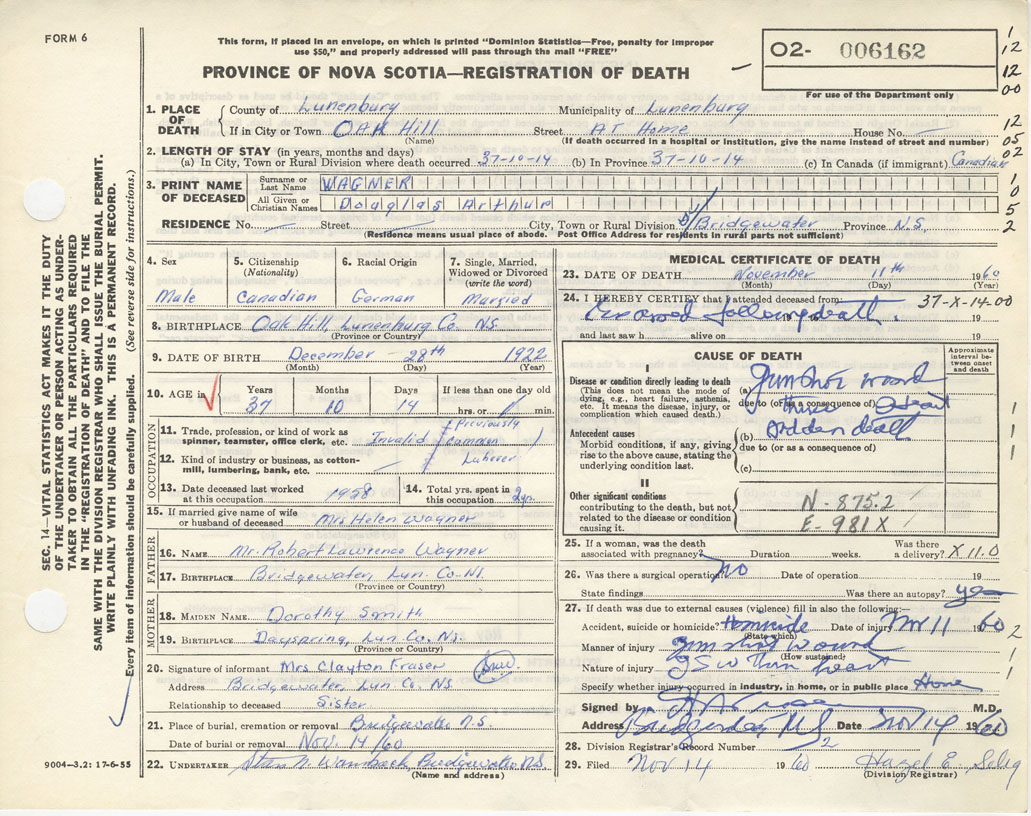 FORM 6
This form, if placed in an envelope, on which is printed "Dominion Statistics—Free, penalty for improper
use $50," and properly addressed will pass through the mail "FREE"
PROVINCE OF NOVA SCOTIA—REGISTRATION OF DEATH
02- 006162
For use of the Department only
1
12
12
00
12
05
02
1
0
5
2
SEC. 14—VITAL STATISTICS ACT MAKES IT THE DUTY
OF THE UNDERTAKER OR PERSON ACTING AS UNDER-
TAKER TO OBTAIN ALL THE PARTICULARS REQUIRED
IN THE "REGISTRATION OF DEATH" AND TO FILE THE
SAME WITH THE DIVISION REGISTRAR WHO SHALL ISSUE THE BURIAL PERMIT.
WRITE PLAINLY WITH UNFADING INK. THIS IS A PERMANENT RECORD.
Every item of information should be carefully supplied. (See reverse side for instructions.)
1. PLACE OF DEATH
County of Lunenburg Municipality of Lunenburg
If in City or Town OAK Hill Street AT Home House No.
(Name) (If death occurred in a hospital or institution, give the name instead of street and number)
2. LENGTH OF STAY (in years, months and days)
(a) In City, Town or Rural Division where death occurred 37-10-14 (b) In Province 37-10-14 (c) In Canada (if immigrant) Canadian
3. PRINT NAME OF DECEASED
Surname or Last Name WAGNER
All Given or Christian Names Douglas Arthur
RESIDENCE No. Street City, Town or Rural Division Bridgewater Province N.S.
(Residence means usual place of abode. Post Office Address for residents in rural parts not sufficient)
4. Sex
Male
5. Citizenship
(Nationality)
Canadian
6. Racial Origin
German
7. Single, Married,
Widowed or Divorced
(write the word)
Married
8. BIRTHPLACE Oak Hill, Lunenburg Co. N.S.
(Province or Country)
9. DATE OF BIRTH December - 28th 1922
(Month) (Day) (Year)
10. AGE in
Years 37
Months 10
Days 14
If less than one day old
hrs. or min.
OCCUPATION
11. Trade, profession or kind of work as
spinner, teamster, office clerk, etc. Invalid Previously Common Laborer
12. Kind of industry or business, as cotton-
mill, lumbering, bank, etc.
13. Date deceased last worked
at this occupation 1958
14. Total yrs. spent in
this occupation
15. If married give name of wife
or husband of deceased Mrs Helen Wagner
FATHER
16. NAME Mr. Robert Lawrence Wagner
17. BIRTHPLACE Bridgewater, Lun. Co. N.S.
(Province or Country)
MOTHER
18. MAIDEN NAME Dorothy Smith
19. BIRTHPLACE Dayspring, Lun. Co. N.S.
(Province or Country)
20. Signature of informant Mrs Clayton Fraser
Address Bridgewater, Lun Co. N.S.
Relationship to deceased Sister
21. Place of burial, cremation or removal Bridgewater N.S.
Date of burial or removal Nov. 14/60
22. UNDERTAKER Bridgewater N.S.
(Name and address)
9004—3.2: 17-6-55
MEDICAL CERTIFICATE OF DEATH
23. DATE OF DEATH November 11th 1960
(Month) (Day) (Year)
24. I HEREBY CERTIFY that I attended deceased from: 37-X-14-00
following death. 19
and last saw h alive on 19
CAUSE OF DEATH
Approximate interval between onset and death
I
Disease or condition directly leading to death
(This does not mean the mode of
dying, e.g., heart failure, asthenia,
etc. It means the disease, injury, or
complication which caused death.)
(a) Gunshot wound
due to (or as a consequence of) thru heart
Antecedent causes
Morbid conditions, if any, giving
rise to the above cause, stating the
underlying condition last.
(b) sudden death
due to (or as a consequence of)
(c)
1
1
1
II
Other significant conditions
contributing to the death, but not
related to the disease or condition
causing it.
N-875.2
E-981X
25. If a woman, was the death
associated with pregnancy? Duration weeks. Was there a delivery? X 11.0
26. Was there a surgical operation? No Date of operation 19
State findings Was there an autopsy? yes
27. If death was due to external causes (violence) fill in also the following:—
Accident, suicide or homicide? Homicide Date of injury Nov 11 1960
(State which)
Manner of injury Gun shot wound
(How sustained)
Nature of injury GSW thru heart
Specify whether injury occurred in industry, in home, or in public place Home
2
1
1
Signed by M.D.
Address Bridgewater N.S. Date Nov 14 1960
28. Division Registrar's Record Number 2
29. Filed Nov 14 1960 Hazel E. Selig
(Division Registrar)